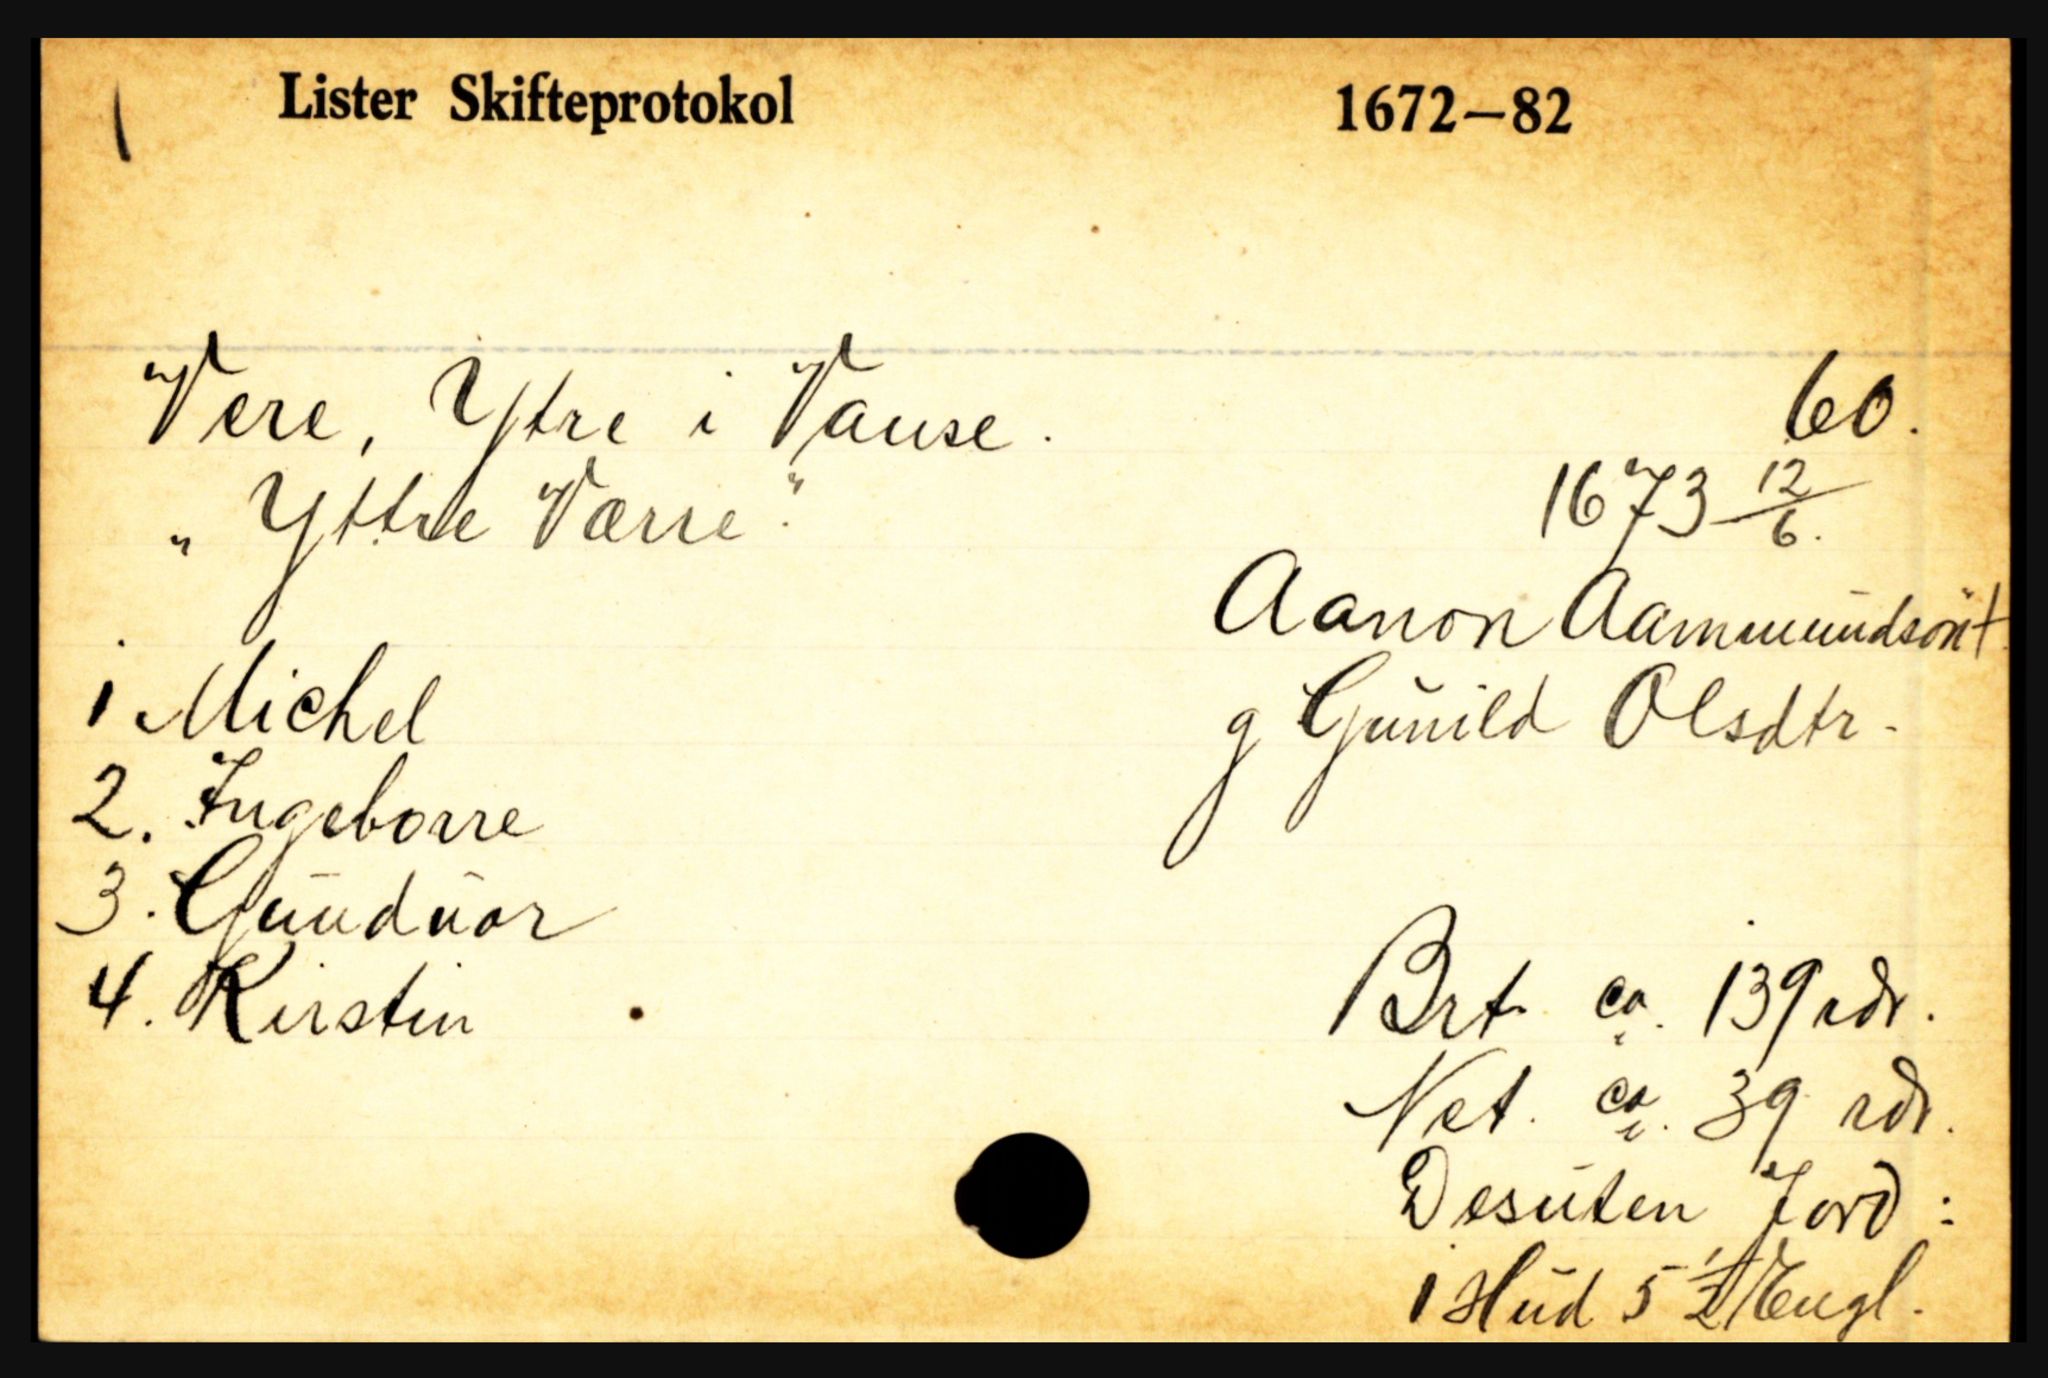 Lister Skifteprotokol 1672–82
Vere, Ytre i Vanse. 60.
„Yttre Værre". 1673 12/6.
Aanon Aammundsön †
1 Michel
g Gunild Olsdtr.
2. Ingeborre
3. Gundvor
4. Kirstin
Brt. ca. 139 rdr.
Net. ca. 39 rdr.
Desuten Jord:
1 Hud 5 1/2 Engl.